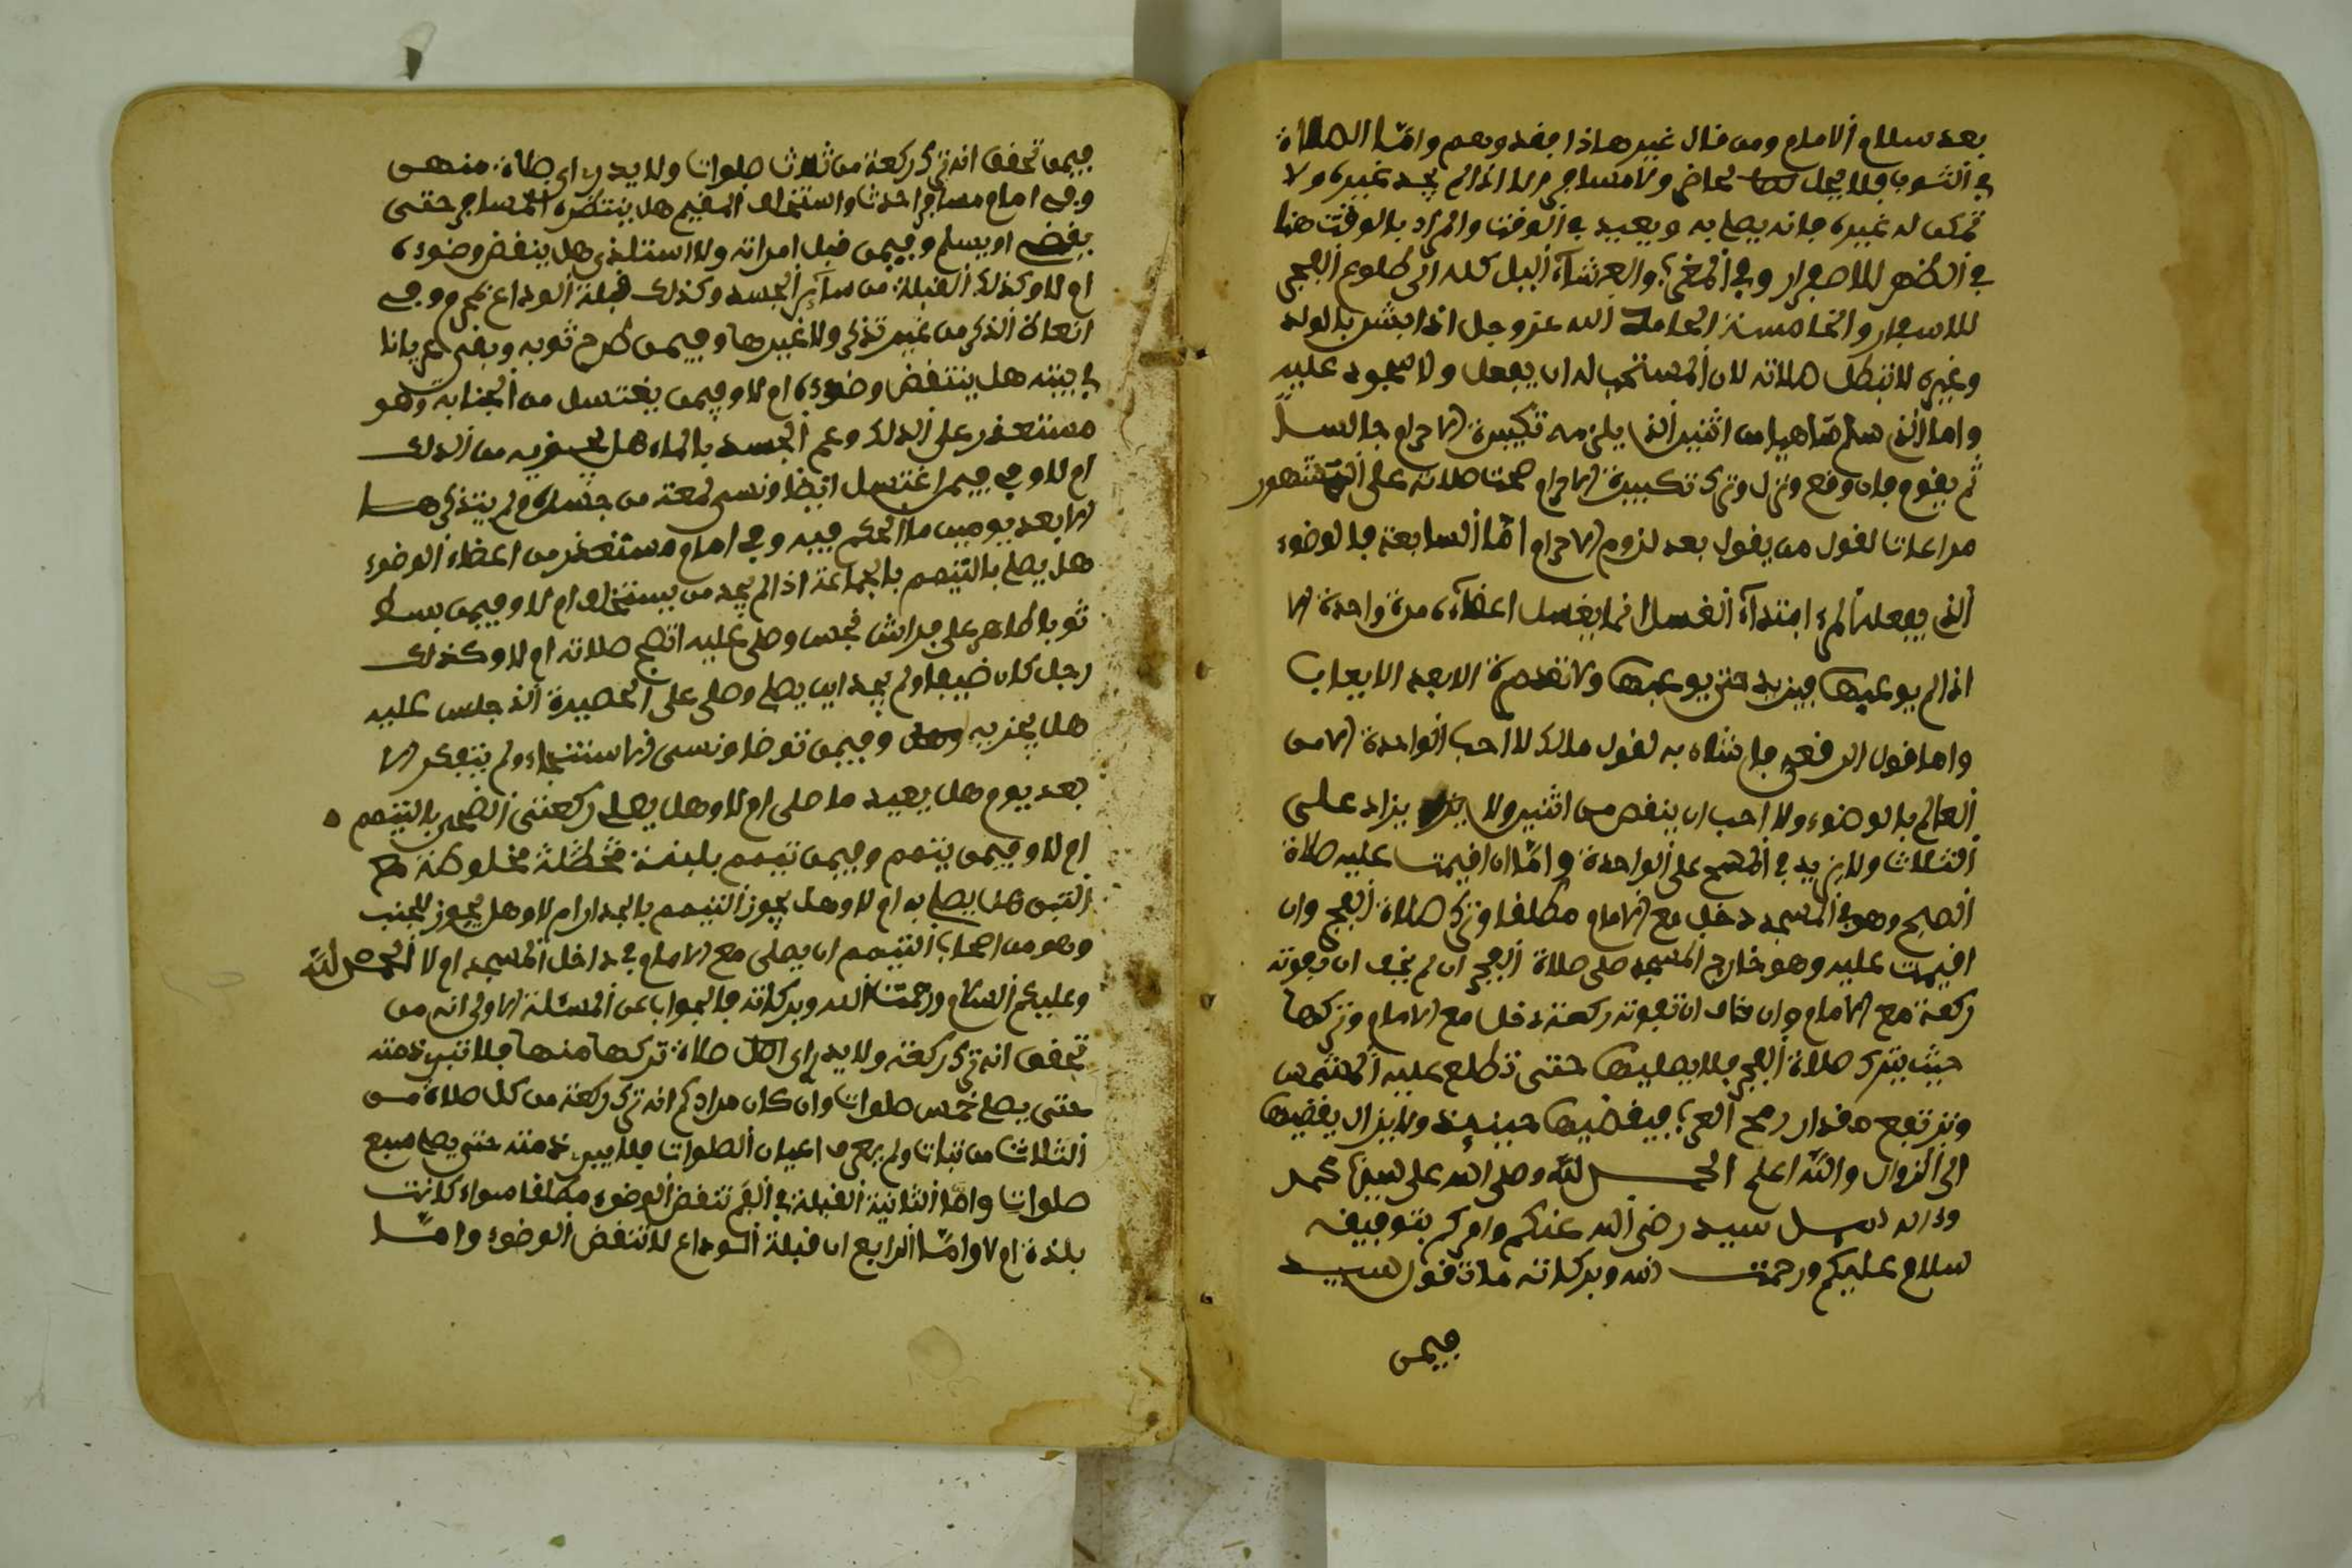 بعد سلام الامام ومن قال غير هاذا فقد وهم وامّا الصلاة
في الثوب فلا يحل لحاضر ولا مسافر الا اذا لم يجد غيره ولا
تمكن له غيره فانه يصلي به ويعيد في الوقت والمراد بالوقت هنا
في الظهر للاصفرار وفي المغرب والعشاء الليل كله الى طلوع الفجر
للاسفار والخامسة الحامد الله عز وجل اذا بشر بالولد
وغيره لا تبطل صلاته لان المستحب له ان يفعل ولا سجود عليه
واما الذي سلم ساهيا من اثنين الذي يلزمه تكبيرة الاحرام جالسا
ثم يقوم فان وقع ونزل وترك تكبيرة الاحرام صحت صلاته على المشهور
مراعاتا لقول من يقول بعد لزوم الاحرام امّا السابعة فالوضوء
الذي يفعله المرء ابتداء الغسل انما يغسل اعضاءه مرة واحدة الا
اذا لم يوعبها فيزيد حتى يوعبها ولا تقدمرة الا بعد الايعاب
واما قول الرفعي فان شاء به لقول مالك لا احب الواحدة الا من
العالم بالوضوء ولا احب ان ينقص من اثنين ولا يزاد على
الثلاث ولا يزيد في المسح على الواحدة وامّا ان اقيمت عليه صلاة
الصبح وهو في المسجد دخل مع الامام مطلقا وترك صلاة الفجر وان
اقيمت عليه وهو خارج المسجد صلى صلاة الفجر ان لم يخف ان تفوته
ركعة مع الامام وان خاف ان تفوته ركعة دخل مع الامام وتركها
حيث يترك صلاة الفجر فلا يصليها حتى تطلع عليه الشمس
وترتفع مقدار رمح العرب فيقضيها حينيذ ولا يزال يقضيها
الى الزوال والله اعلم الحمد لله وصلى الله على نبينا محمد
واله سيد رضي الله عنكم وامركم بتوفيقه
سلام عليكم ورحمت الله وبركاته ما تقول سيد
فيمن
فيمن تحقق انه ترك ركعة من ثلاث صلوات ولا يدري اي صلاة منهن
وفي امام مسافر احدث واستخلف المقيم هل ينتظره المسافر حتى
يقضي او يسلم وفيمن قبل امراته ولا استلذ هل ينقض وضوءه
ام لا وكذلك القبلة من ساير الجسد وكذلك قبلة الوداع لمحرم وفي
انعاظ الذكر من غير تذكر ولا غيرها وفيمن طرح ثوبه وبقي عريانا
في بيته هل ينتقض وضوءه ام لا وفيمن يغتسل من الجنابة وهو
مستعذر على الدلك وعم الجسد بالماء هل يجزيه من الدلك
ام لا وفي فيمن اغتسل ايضا ونسي لمعة من جسده ولم يتذكرها
الا بعد يومين ما الحكم فيه وفي امام مستعذر من اعضاء الوضوء
هل يصلي بالتيمم بالجماعة اذا لم يجد من يستخلف ام لا وفيمن بسط
ثوبا طاهر على فراش نجس وصلى عليه اتصح صلاته ام لا وكذلك
رجل كان ضيفا ولم يجد اين يصلي وصلى على الحصيرة الذ جلس عليه
هل يجزيه وفيمن توضا ونسي الاستنجاء ولم يتفكر الا
بعد يوم هل يعيد ما صلى ام لا وهل يصلي ركعتي الفجر بالتيمم
ام لا وفيمن يتمم وفيمن تيمم بلبنة مخلوطة مع
التبن هل يصلي به ام لا وهل يجوز التيمم بالجدار ام لا وهل يجوز للجنب
وهو من اصحاب التيمم ان يصلي مع الامام في داخل المسجد ام لا الحمد لله
وعليكم السلام ورحمت الله وبركاته فالجواب عن المسئلة الاولى انه من
تحقق انه ترك ركعة ولا يدري اي صلاة تركها منها فلا تبرى ذمته
حتى يصلي خمس صلوات وان كان مرادكم انه ترك ركعة من كل صلاة من
الثلاث من ثباتا ولم يعرف اعيان الصلوات فلا يبرى ذمته حتى يصلي سبع
صلوات وامّا الثانية القبلة في الفم تنقض الوضوء مطلقا سواء كانت
بلذة ام لا وامّا الرابع ان قبلة الوداع لا تنقض الوضوء وامّا